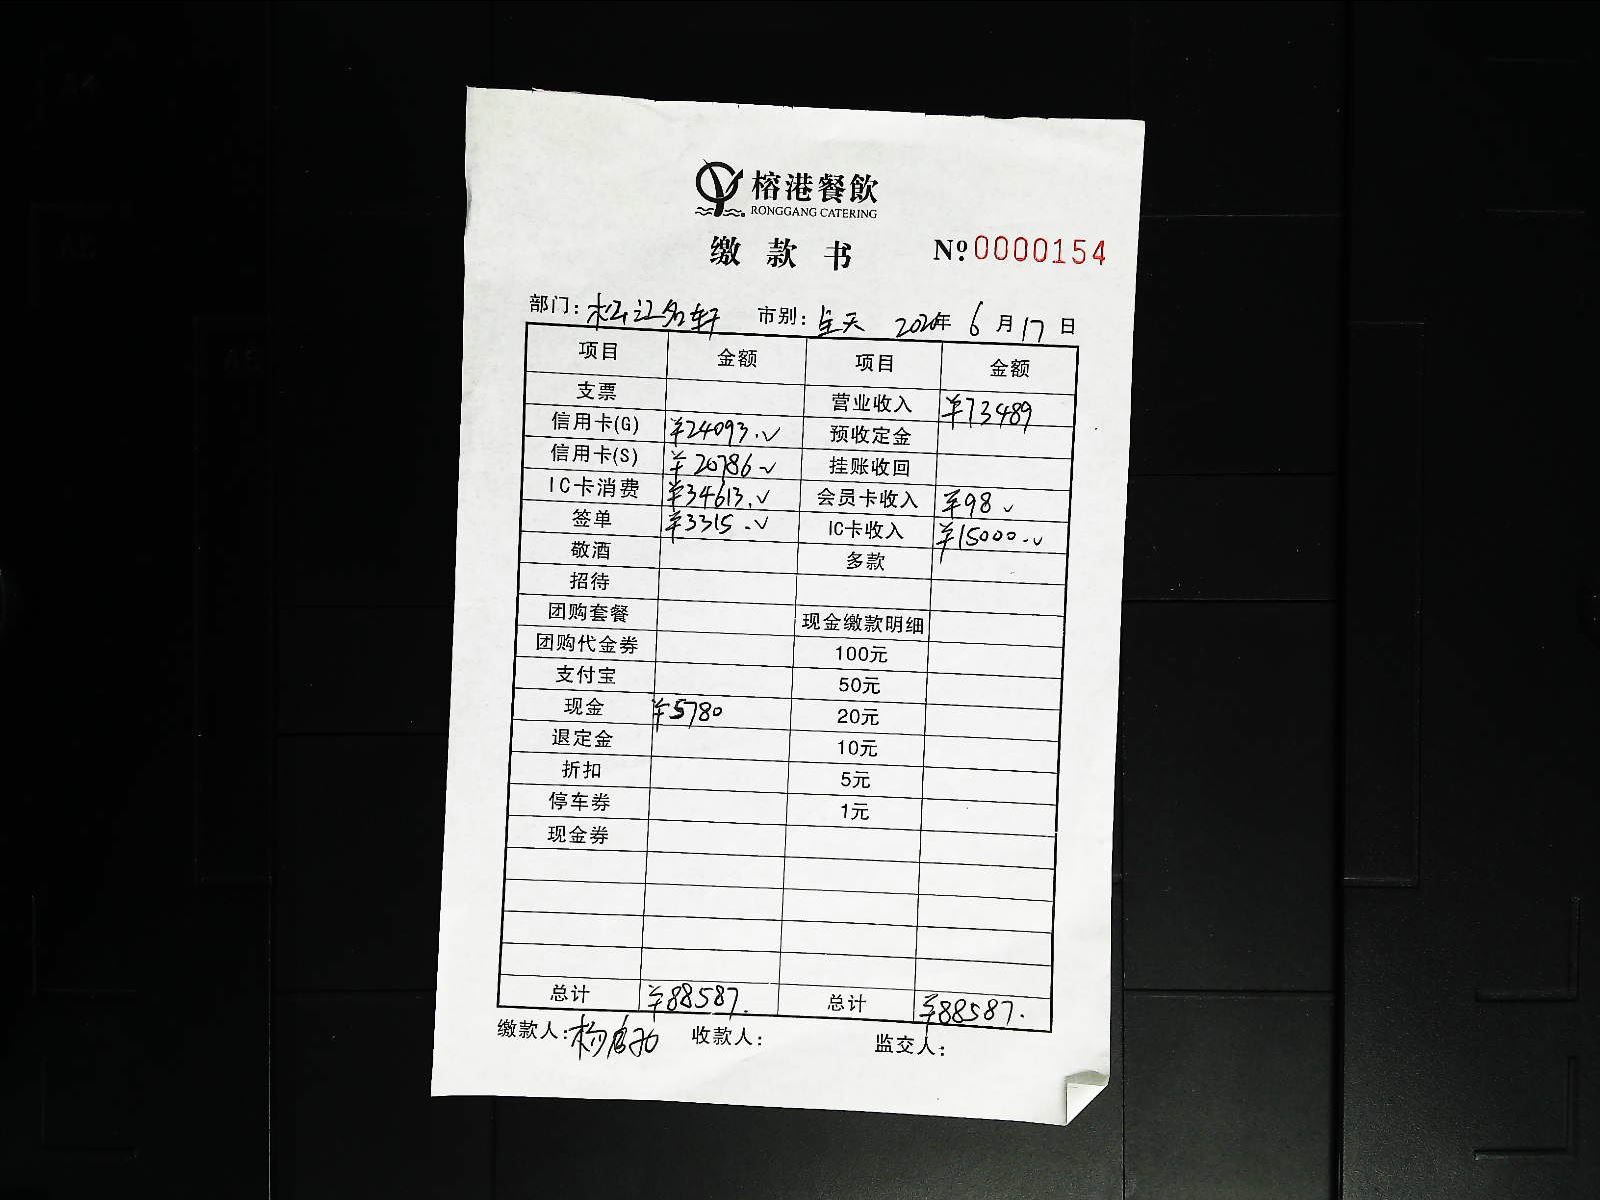 榕港餐飲
RONGGANG CATERING
缴款书 №0000154
部门：松江名轩 市别：全天 2020年6月17日
项目 金额 项目 金额
支票 营业收入 ¥73489
信用卡(G) ¥24093. 预收定金
信用卡(S) ¥20786 挂账收回
IC卡消费 ¥34613. 会员卡收入 ¥98
签单 ¥3315. IC卡收入 ¥15000.
敬酒 多款
招待
团购套餐 现金缴款明细
团购代金券 100元
支付宝 50元
现金 ¥5780 20元
退定金 10元
折扣 5元
停车券 1元
现金券
总计 ¥88587. 总计 ¥88587.
缴款人：杨 收款人： 监交人：